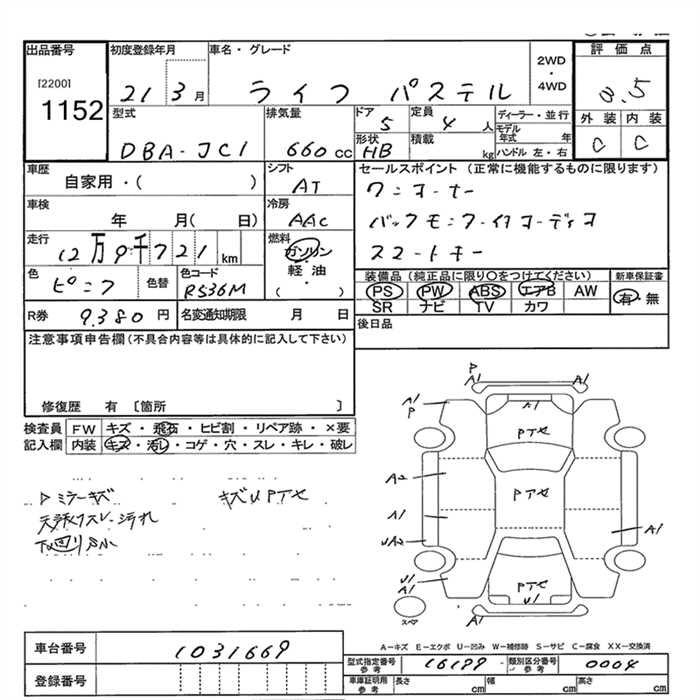 出品番号
[2200]
1152
初度登録年月
21 3月
車名・グレード
ライフ パステル
2WD
・
4WD
評価点
3.5
外装 内装
C C
型式
DBA-JC1
排気量
660cc
ドア
5
定員
4人
形状
HB
積載
kg
ディーラー・並行
モデル年式 年
ハンドル 左・右
車歴
自家用・( )
シフト
AT
セールスポイント(正常に機能するものに限ります)
ワンオーナー
バックモニターイクオーディオ
スマートキー
車検
年 月( 日)
冷房
AAC
走行
12万9千721km
燃料
ガソリン
・
軽油
( )
色
ピンク
色替
色コード
R536M
装備品(純正品に限り○をつけてください)
PS PW ABS エアB AW
SR ナビ TV カワ
新車保証書
有・無
R券
9,380円
名変通知期限
月 日
後日品
注意事項申告欄(不具合内容等は具体的に記入して下さい)
修復歴 有〔箇所 〕
検査員記入欄
FW キズ・飛石・ヒビ割・リペア跡・×要
内装 キズ・汚レ・コゲ・穴・スレ・キレ・破レ
Pミラーキズ
キズUPTメ
天張リスレ・汚れ
下回りSホ
P
A1
A1
A1
P
A1
PTメ
A2
PTメ
A1
A1
UA2
U1
A1
PTメ
U1
A1
スペア
A-キズ E-エクボ U-凹み W-補修跡 S-サビ C-腐食 XX-交換済
車台番号
1031669
登録番号
型式指定番号 参考
16199
類別区分番号 参考
0004
車庫証明用 参考
長さ cm
幅 cm
高さ cm